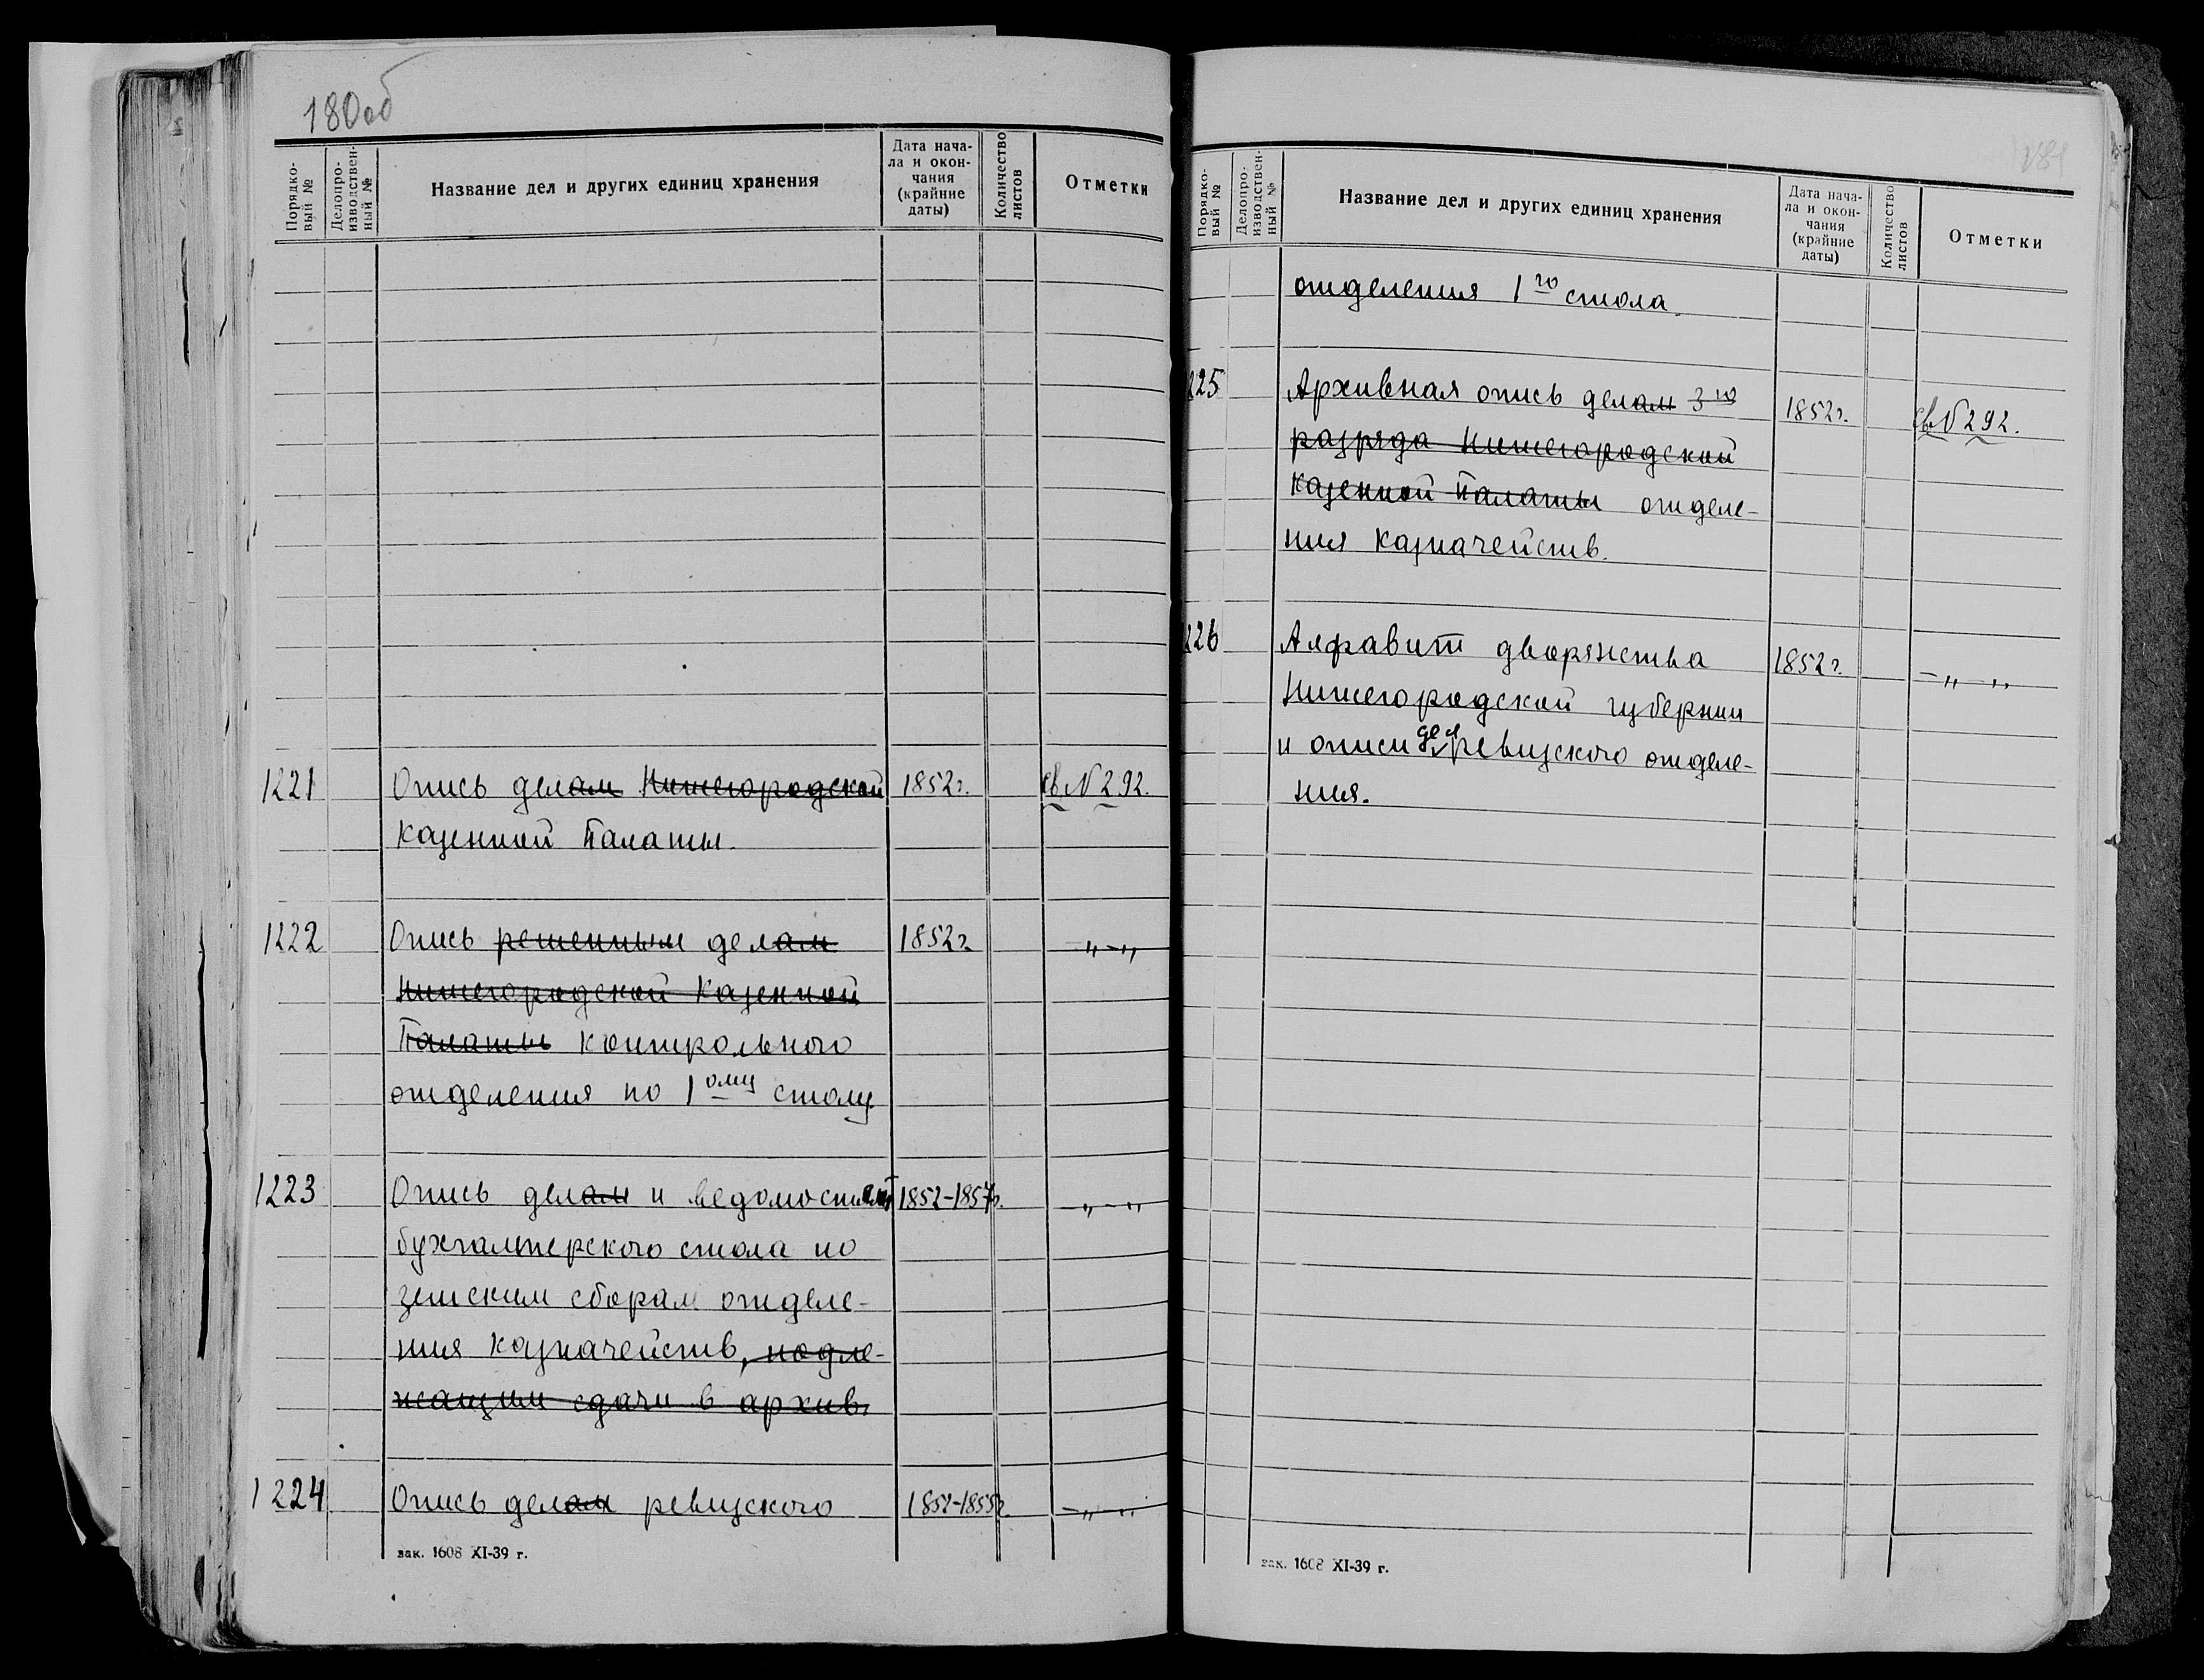 180об
Порядко-
вый №
Делопро-
изводствен-
ный №
Название дел и других единиц хранения
Дата нача-
ла и окон-
чания
(крайние
даты)
Количество
листов
Отметки
1221 Опись делам Нижегородской 1852г. св N 292.
Казенной Палаты.
1222 Опись решенным делам 1852г. „ – „
Нижегородской Казенной
Палаты контрольного
отделения по 1ому столу
1223 Опись делам и ведомостей 1852-1857г. – „ – „
бухгалтерского стола по
земским сборам отделе-
ния казначейств, подле-
жащим сдачи в архив.
1224 Опись делам ревизского 1852-1855г. – „ – „
зак. 1608 XI-39 г.
181
Порядко-
вый №
Делопро-
изводствен-
ный №
Название дел и других единиц хранения
Дата нача-
ла и окон-
чания
(крайние
даты)
Количество
листов
Отметки
отделения 1го стола.
225 Архивная опись делам 3го 1852г. св N 292.
разряда Нижегородской
Казенной Палаты отделе-
ния казначейств.
226 Алфавит дворянства 1852г. – „ – „
Нижегородской губернии
и описи дел ревизского отделе-
ния.
зак. 1608 XI-39 г.